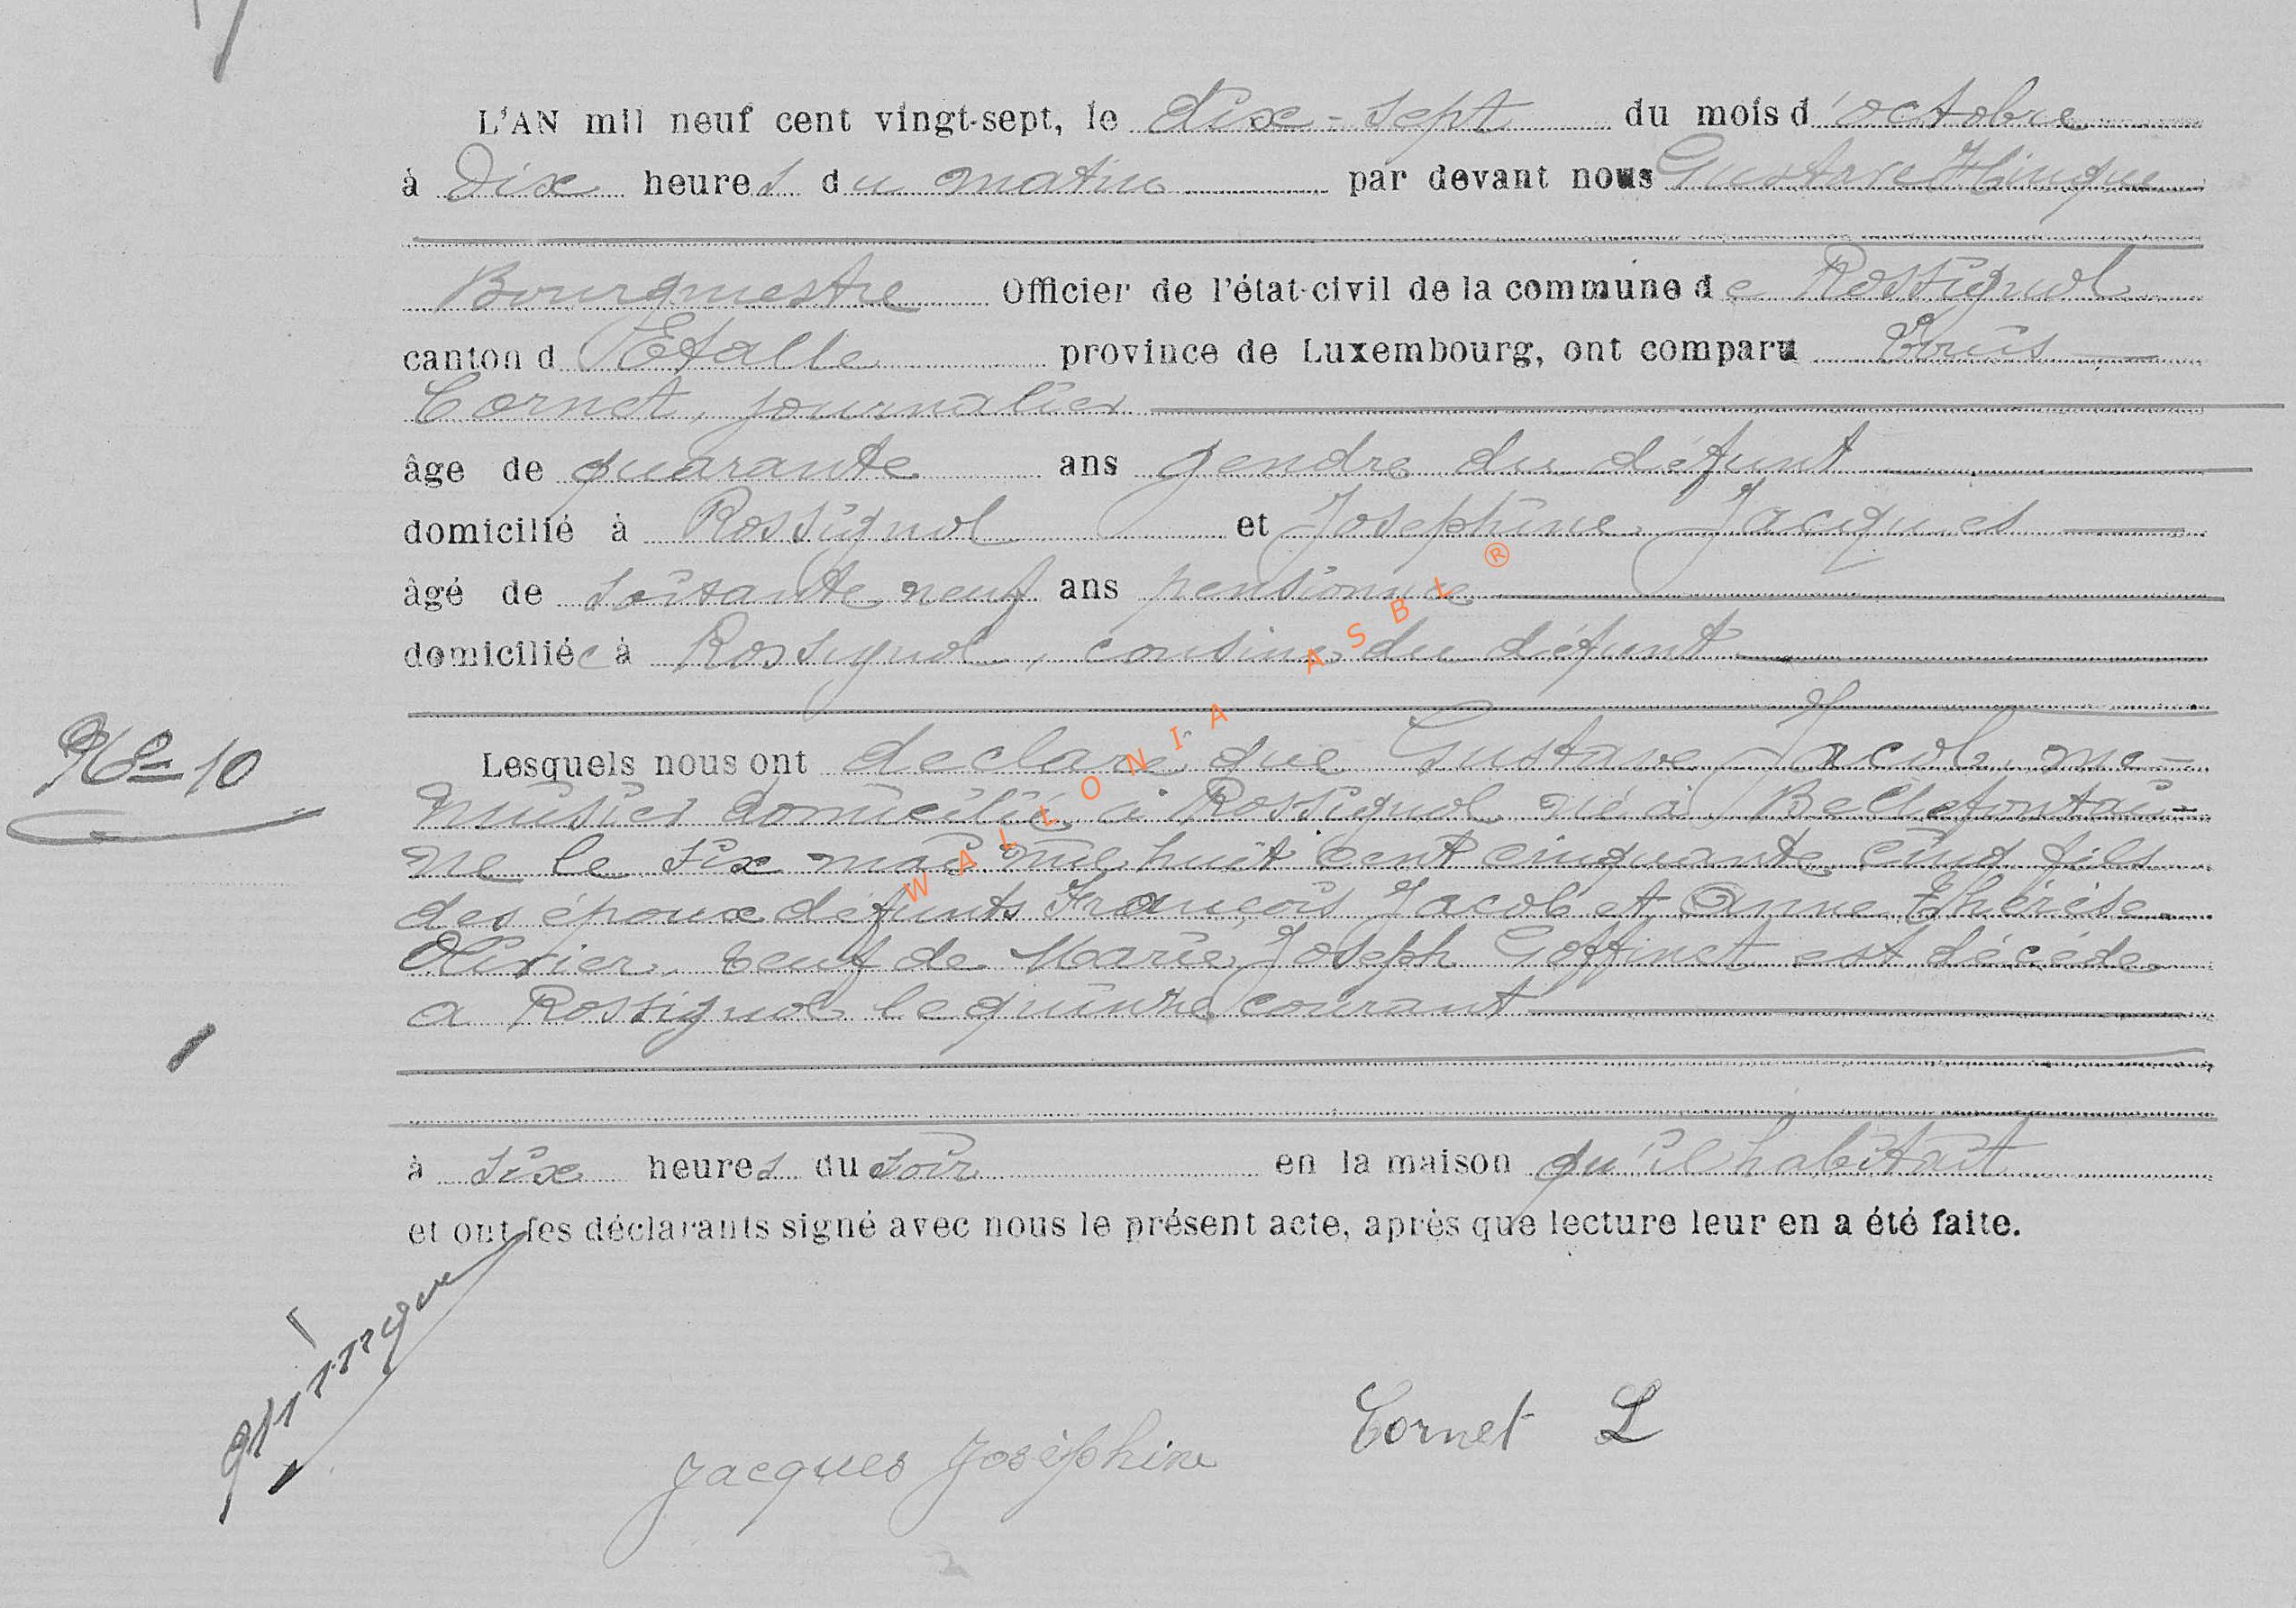 L'AN mil neuf cent vingt-sept, le dix-sept du mois d'octobre
à Dix heures du matin par devant nous Gustave Hinque
Bourgmestre Officier de l'état-civil de la commune de Rossignol
canton d'Etalle province de Luxembourg, ont comparu Louis
Cornet, journalier
âge de quarante ans gendre du défunt
domicilié à Rossignol et Joséphine Jacques
âgé de soixante neuf ans pensionnée
domiciliée à Rossignol, cousine du défunt
N° 10
Lesquels nous ont declaré que Gustave Jacob, me-
nuisier domicilié à Rossignol né à Bellefontai-
ne le six mai mil huit cent cinquante cinq fils
des époux défunts François Jacob et Anne Thérèse
Olivier, veuf de Marie Joseph Goffinet est décédé
a Rossignol le quinze courant
à six heures du soir en la maison qu'il habitait
et ont les déclarants signé avec nous le présent acte, après que lecture leur en a été faite.
Cornet L
Jacques Joséphine
WALLONIA ASBL ®